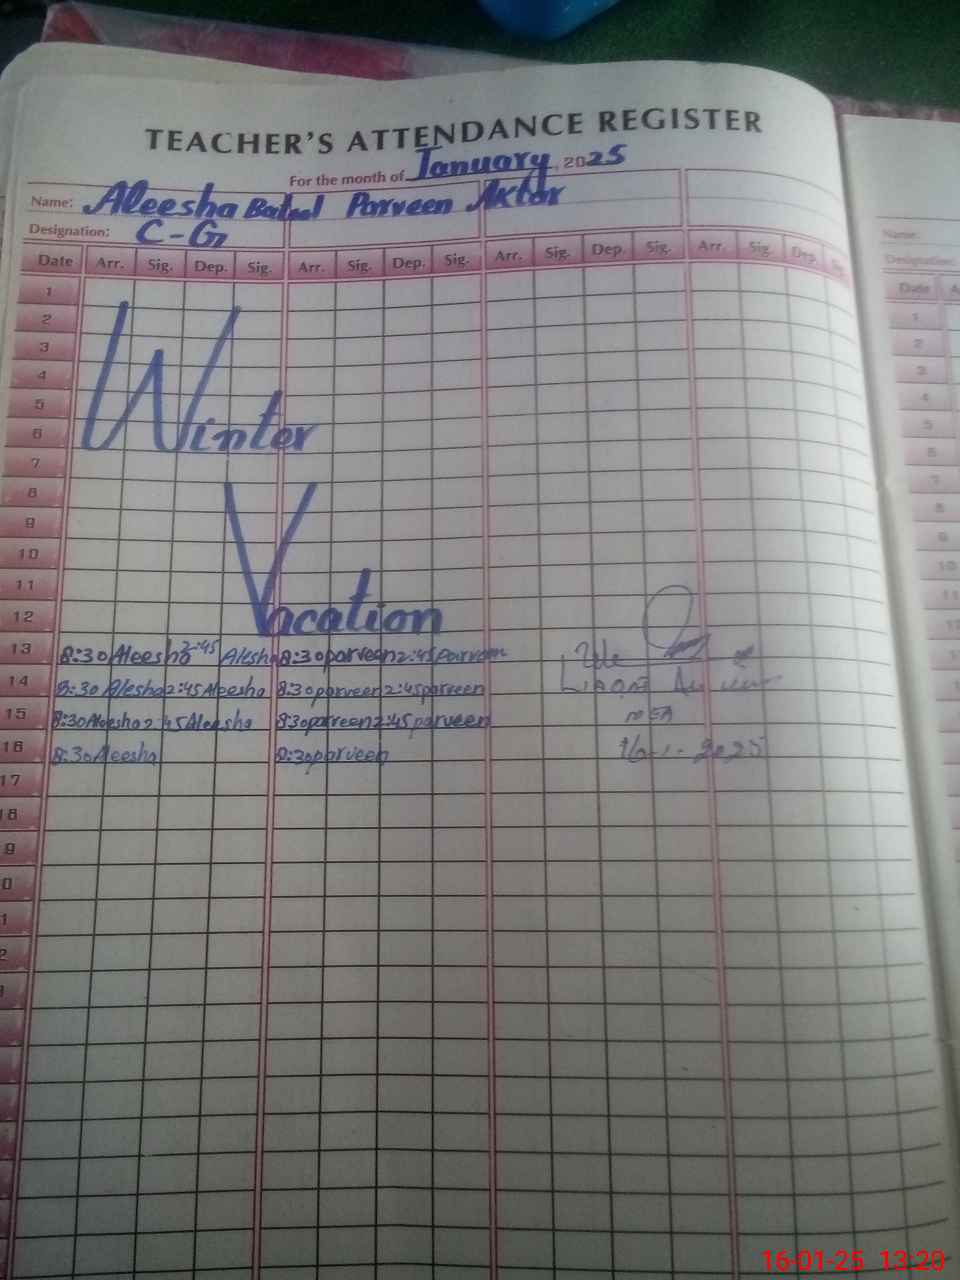 TEACHER'S ATTENDANCE REGISTER
For the month of January, 2025
Name: Aleesha Batool Parveen Aktar
Designation: C-G
Date Arr. Sig. Dep. Sig. Arr. Sig. Dep. Sig. Arr. Sig. Dep. Sig. Arr. Sig. Dep. Sig.
1
2
3
4
5
6
Winter
7
8
9
10
11
12
Vacation
13 8:30 Aleesha 2:45 Alesha 8:30 parveen 2:45 Parveen
14 8:30 Alesha 2:45 Aleesha 8:30 parveen 2:45 parveen
15 8:30 Aleesha 2:45 Aleesha 8:30 parveen 2:45 parveen
MEA
16 8:30 Aleesha 8:30 parveen
16-1-2025
17
18
9
0
1
2
Name:
Designation:
Date A
1
2
3
4
5
6
7
8
9
10
11
16-01-25 13:20